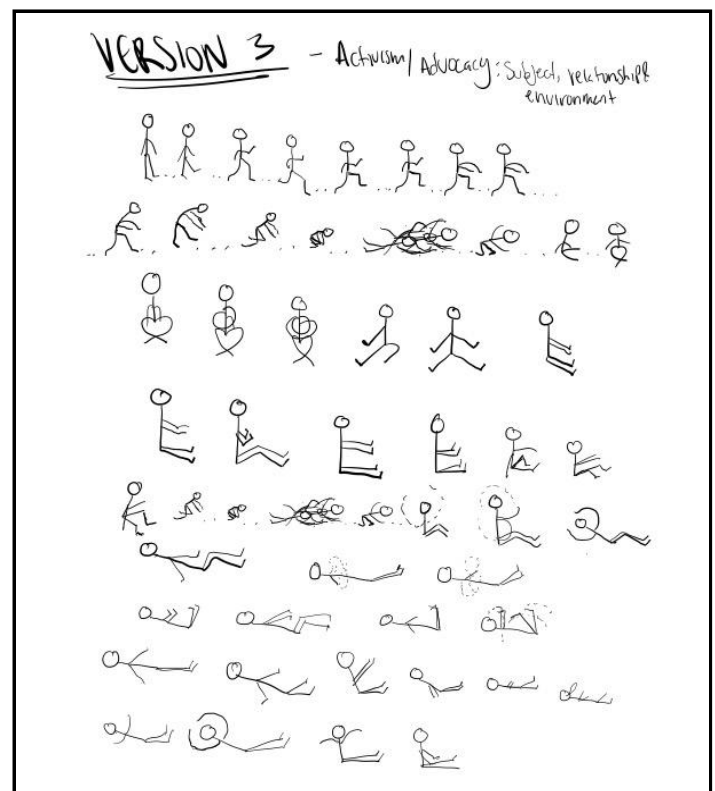 VERSION 3 - Activism/Advocacy: Subject, relationship &
environment